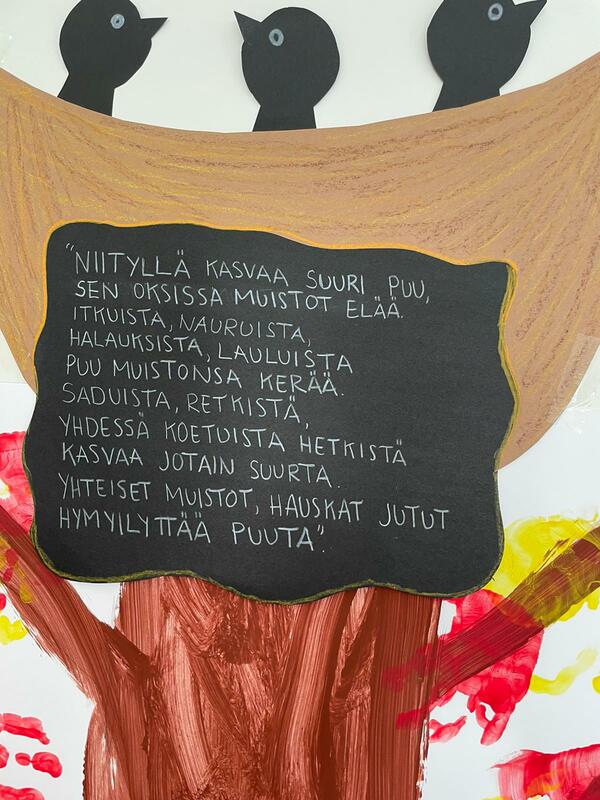 "NIITYLLÄ KASVAA SUURI PUU,
SEN OKSISSA MUISTOT ELÄÄ.
ITKUISTA, NAURUISTA,
HALAUKSISTA, LAULUISTA
PUU MUISTONSA KERÄÄ.
SADUISTA, RETKISTÄ,
YHDESSÄ KOETUISTA HETKISTÄ
KASVAA JOTAIN SUURTA.
YHTEISET MUISTOT, HAUSKAT JUTUT
HYMYILYTTÄÄ PUUTA".